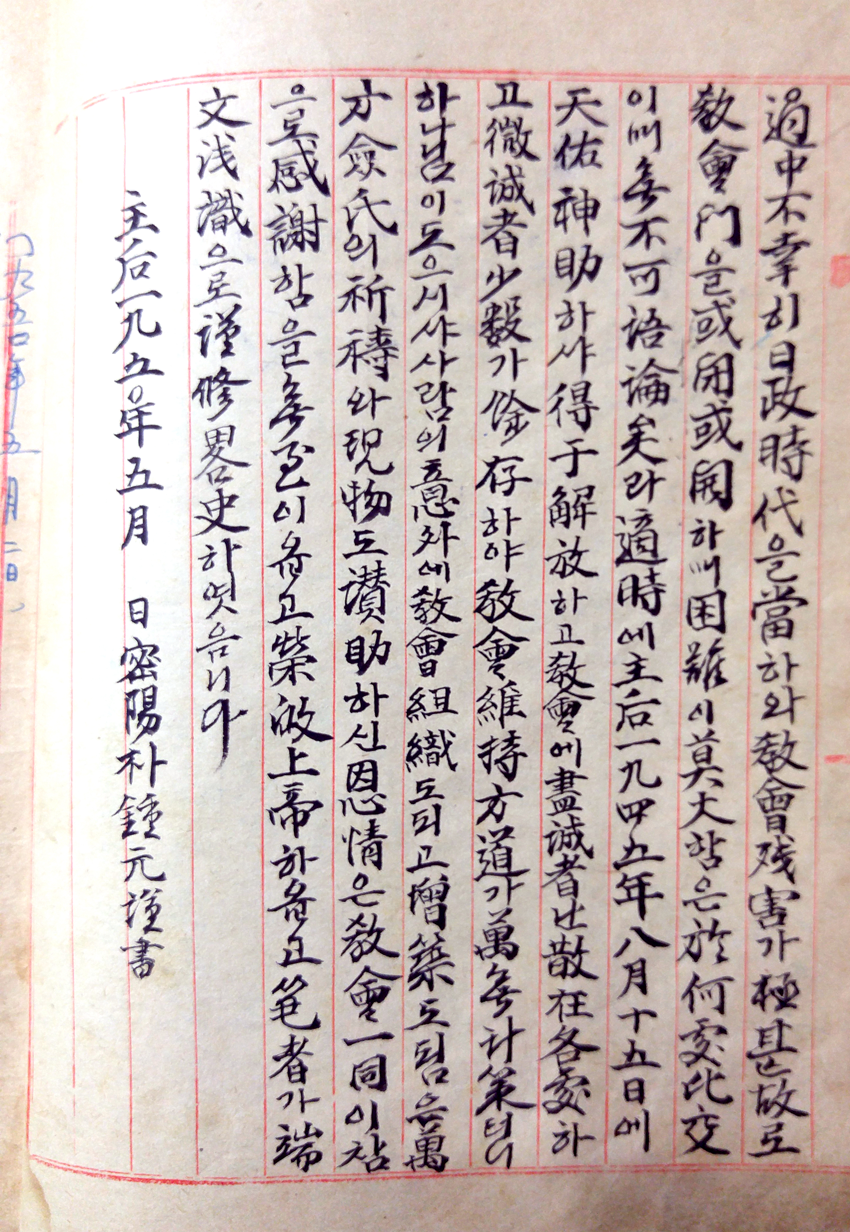 過中不幸히日政時代을當하와敎會残害가極甚故로
敎會門을或閉或開하며困難이莫大함은於何處比交
이며無不可語論矣라適時에主后一九四五年八月十五日에
天佑神助하샤得于解放하고敎會에盡誠者난散在各處하
고微誠者少数가餘存하야敎會維持方道가萬無計策터니
하나님이도으시샤사람의意외에敎會組織도되고增築도됨은萬
才僉氏의祈禱와現物도讃助하신恩情은敎會一同이참
으로感謝함을無至이옵고榮啟上帝하옵고筆者가端
文浅識으로谨修畧史하엿음니다
主后一九五〇年五月 日密陽朴鍾元谨書
一九五〇年五月二日